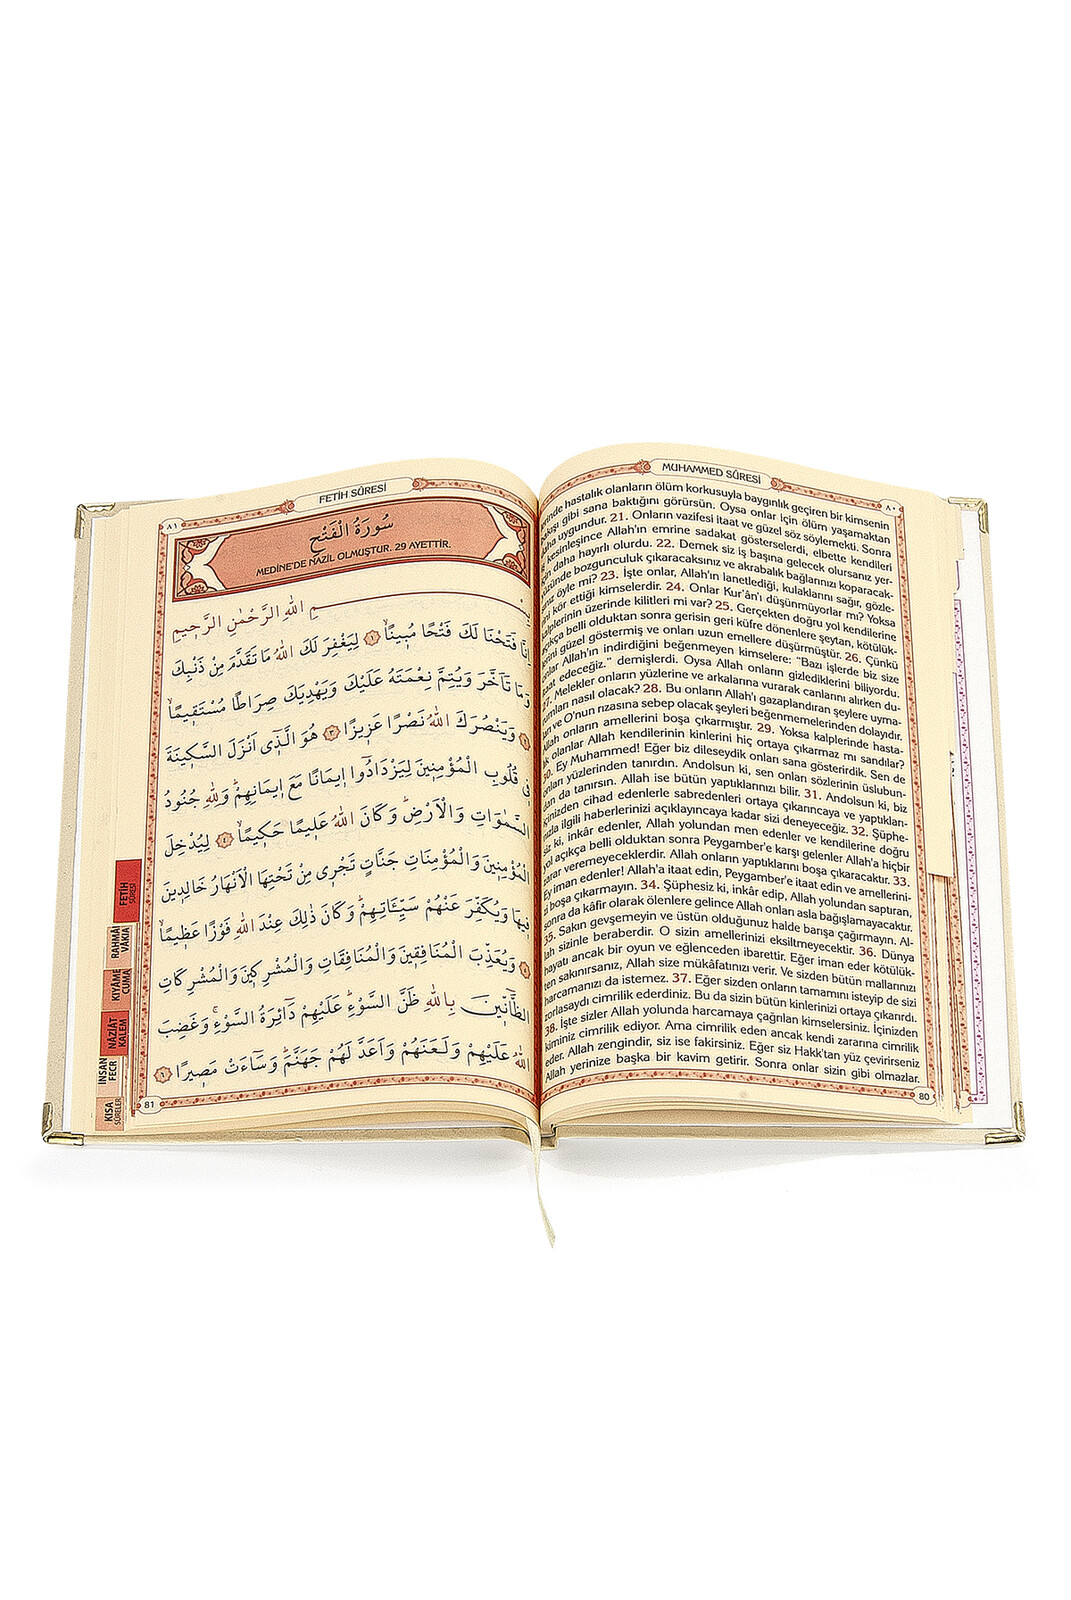 MUHAMMED SÛRESİ
٨٠
hastalık olanların ölüm korkusuyla baygınlık geçiren bir kimsenin
gibi sana baktığını görürsün. Oysa onlar için ölüm yaşamaktan
uygundur. 21. Onların vazifesi itaat ve güzel söz söylemekti. Sonra
kesinleşince Allah'ın emrine sadakat gösterselerdi, elbette kendileri
için daha hayırlı olurdu. 22. Demek siz iş başına gelecek olursanız yer-
yüzünde bozgunculuk çıkaracaksınız ve akrabalık bağlarınızı koparacak-
sınız öyle mi? 23. İşte onlar, Allah'ın lanetlediği, kulaklarını sağır, gözle-
rini kör ettiği kimselerdir. 24. Onlar Kur'ân'ı düşünmüyorlar mı? Yoksa
kalplerinin üzerinde kilitleri mi var? 25. Gerçekten doğru yol kendilerine
açıkça belli olduktan sonra gerisin geri küfre dönenlere şeytan, kötülük-
lerini güzel göstermiş ve onları uzun emellere düşürmüştür. 26. Çünkü
onlar Allah'ın indirdiğini beğenmeyen kimselere: "Bazı işlerde biz size
itaat edeceğiz." demişlerdi. Oysa Allah onların gizlediklerini biliyordu.
27. Melekler onların yüzlerine ve arkalarına vurarak canlarını alırken du-
rumları nasıl olacak? 28. Bu onların Allah'ı gazaplandıran şeylere uyma-
ve O'nun rızasına sebep olacak şeyleri beğenmemelerinden dolayıdır.
Allah onların amellerini boşa çıkarmıştır. 29. Yoksa kalplerinde hasta-
lık olanlar Allah kendilerinin kinlerini hiç ortaya çıkarmaz mı sandılar?
30. Ey Muhammed! Eğer biz dileseydik onları sana gösterirdik. Sen de
onları yüzlerinden tanırdın. Andolsun ki, sen onları sözlerinin üslubun-
dan da tanırsın. Allah ise bütün yaptıklarınızı bilir. 31. Andolsun ki, biz
içinizden cihad edenlerle sabredenleri ortaya çıkarıncaya ve yaptıkları-
nızla ilgili haberlerinizi açıklayıncaya kadar sizi deneyeceğiz. 32. Şüphe-
siz ki, inkâr edenler, Allah yolundan men edenler ve kendilerine doğru
yol açıkça belli olduktan sonra Peygamber'e karşı gelenler Allah'a hiçbir
zarar veremeyeceklerdir. Allah onların yaptıklarını boşa çıkaracaktır. 33.
Ey iman edenler! Allah'a itaat edin, Peygamber'e itaat edin ve amellerini-
zi boşa çıkarmayın. 34. Şüphesiz ki, inkâr edip, Allah yolundan saptıran,
sonra da kâfir olarak ölenlere gelince Allah onları asla bağışlamayacaktır.
35. Sakın gevşemeyin ve üstün olduğunuz halde barışa çağırmayın. Al-
lah sizinle beraberdir. O sizin amellerinizi eksiltmeyecektir. 36. Dünya
hayatı ancak bir oyun ve eğlenceden ibarettir. Eğer iman eder kötülük-
ten sakınırsanız, Allah size mükâfatınızı verir. Ve sizden bütün mallarınızı
harcamanızı da istemez. 37. Eğer sizden onların tamamını isteyip de sizi
zorlasaydı cimrilik ederdiniz. Bu da sizin bütün kinlerinizi ortaya çıkarırdı.
38. İşte sizler Allah yolunda harcamaya çağrılan kimselersiniz. İçinizden
kiminiz cimrilik ediyor. Ama cimrilik eden ancak kendi zararına cimrilik
eder. Allah zengindir, siz ise fakirsiniz. Eğer siz Hakk'tan yüz çevirirseniz
Allah yerinize başka bir kavim getirir. Sonra onlar sizin gibi olmazlar.
80
FETİH SÛRESİ
٨١
سُورَةُ الْفَتْحِ
MEDİNE'DE NAZİL OLMUŞTUR. 29 AYETTİR.
بِسْمِ اللهِ الرَّحْمٰنِ الرَّحِيمِ
اِنَّا فَتَحْنَا لَكَ فَتْحًا مُبِينًا ﴿١﴾ لِيَغْفِرَ لَكَ اللهُ مَا تَقَدَّمَ مِنْ ذَنْبِكَ
وَمَا تَاَخَّرَ وَيُتِمَّ نِعْمَتَهُ عَلَيْكَ وَيَهْدِيَكَ صِرَاطًا مُسْتَقِيمًا
﴿٢﴾ وَيَنْصُرَكَ اللهُ نَصْرًا عَزِيزًا ﴿٣﴾ هُوَ الَّذِى اَنْزَلَ السَّكِينَةَ
فِى قُلُوبِ الْمُؤْمِنِينَ لِيَزْدَادُوا اِيمَانًا مَعَ اِيمَانِهِمْ وَلِلّٰهِ جُنُودُ
السَّمٰوَاتِ وَالْاَرْضِ وَكَانَ اللهُ عَلِيمًا حَكِيمًا ﴿٤﴾ لِيُدْخِلَ
الْمُؤْمِنِينَ وَالْمُؤْمِنَاتِ جَنَّاتٍ تَجْرِى مِنْ تَحْتِهَا الْاَنْهَارُ خَالِدِينَ
فِيهَا وَيُكَفِّرَ عَنْهُمْ سَيِّـَٔاتِهِمْ وَكَانَ ذٰلِكَ عِنْدَ اللهِ فَوْزًا عَظِيمًا
﴿٥﴾ وَيُعَذِّبَ الْمُنَافِقِينَ وَالْمُنَافِقَاتِ وَالْمُشْرِكِينَ وَالْمُشْرِكَاتِ
الظَّٓانِّينَ بِاللهِ ظَنَّ السَّوْءِ عَلَيْهِمْ دَٓائِرَةُ السَّوْءِ وَغَضِبَ
اللهُ عَلَيْهِمْ وَلَعَنَهُمْ وَاَعَدَّ لَهُمْ جَهَنَّمَ وَسَٓاءَتْ مَصِيرًا ﴿٦﴾
81
FETİH
SÛRESİ
RAHMÂN
VÂKIA
KIYÂME
CUMA
NÂZİÂT
KALEM
İNSAN
FECR
KISA
SÛRELER